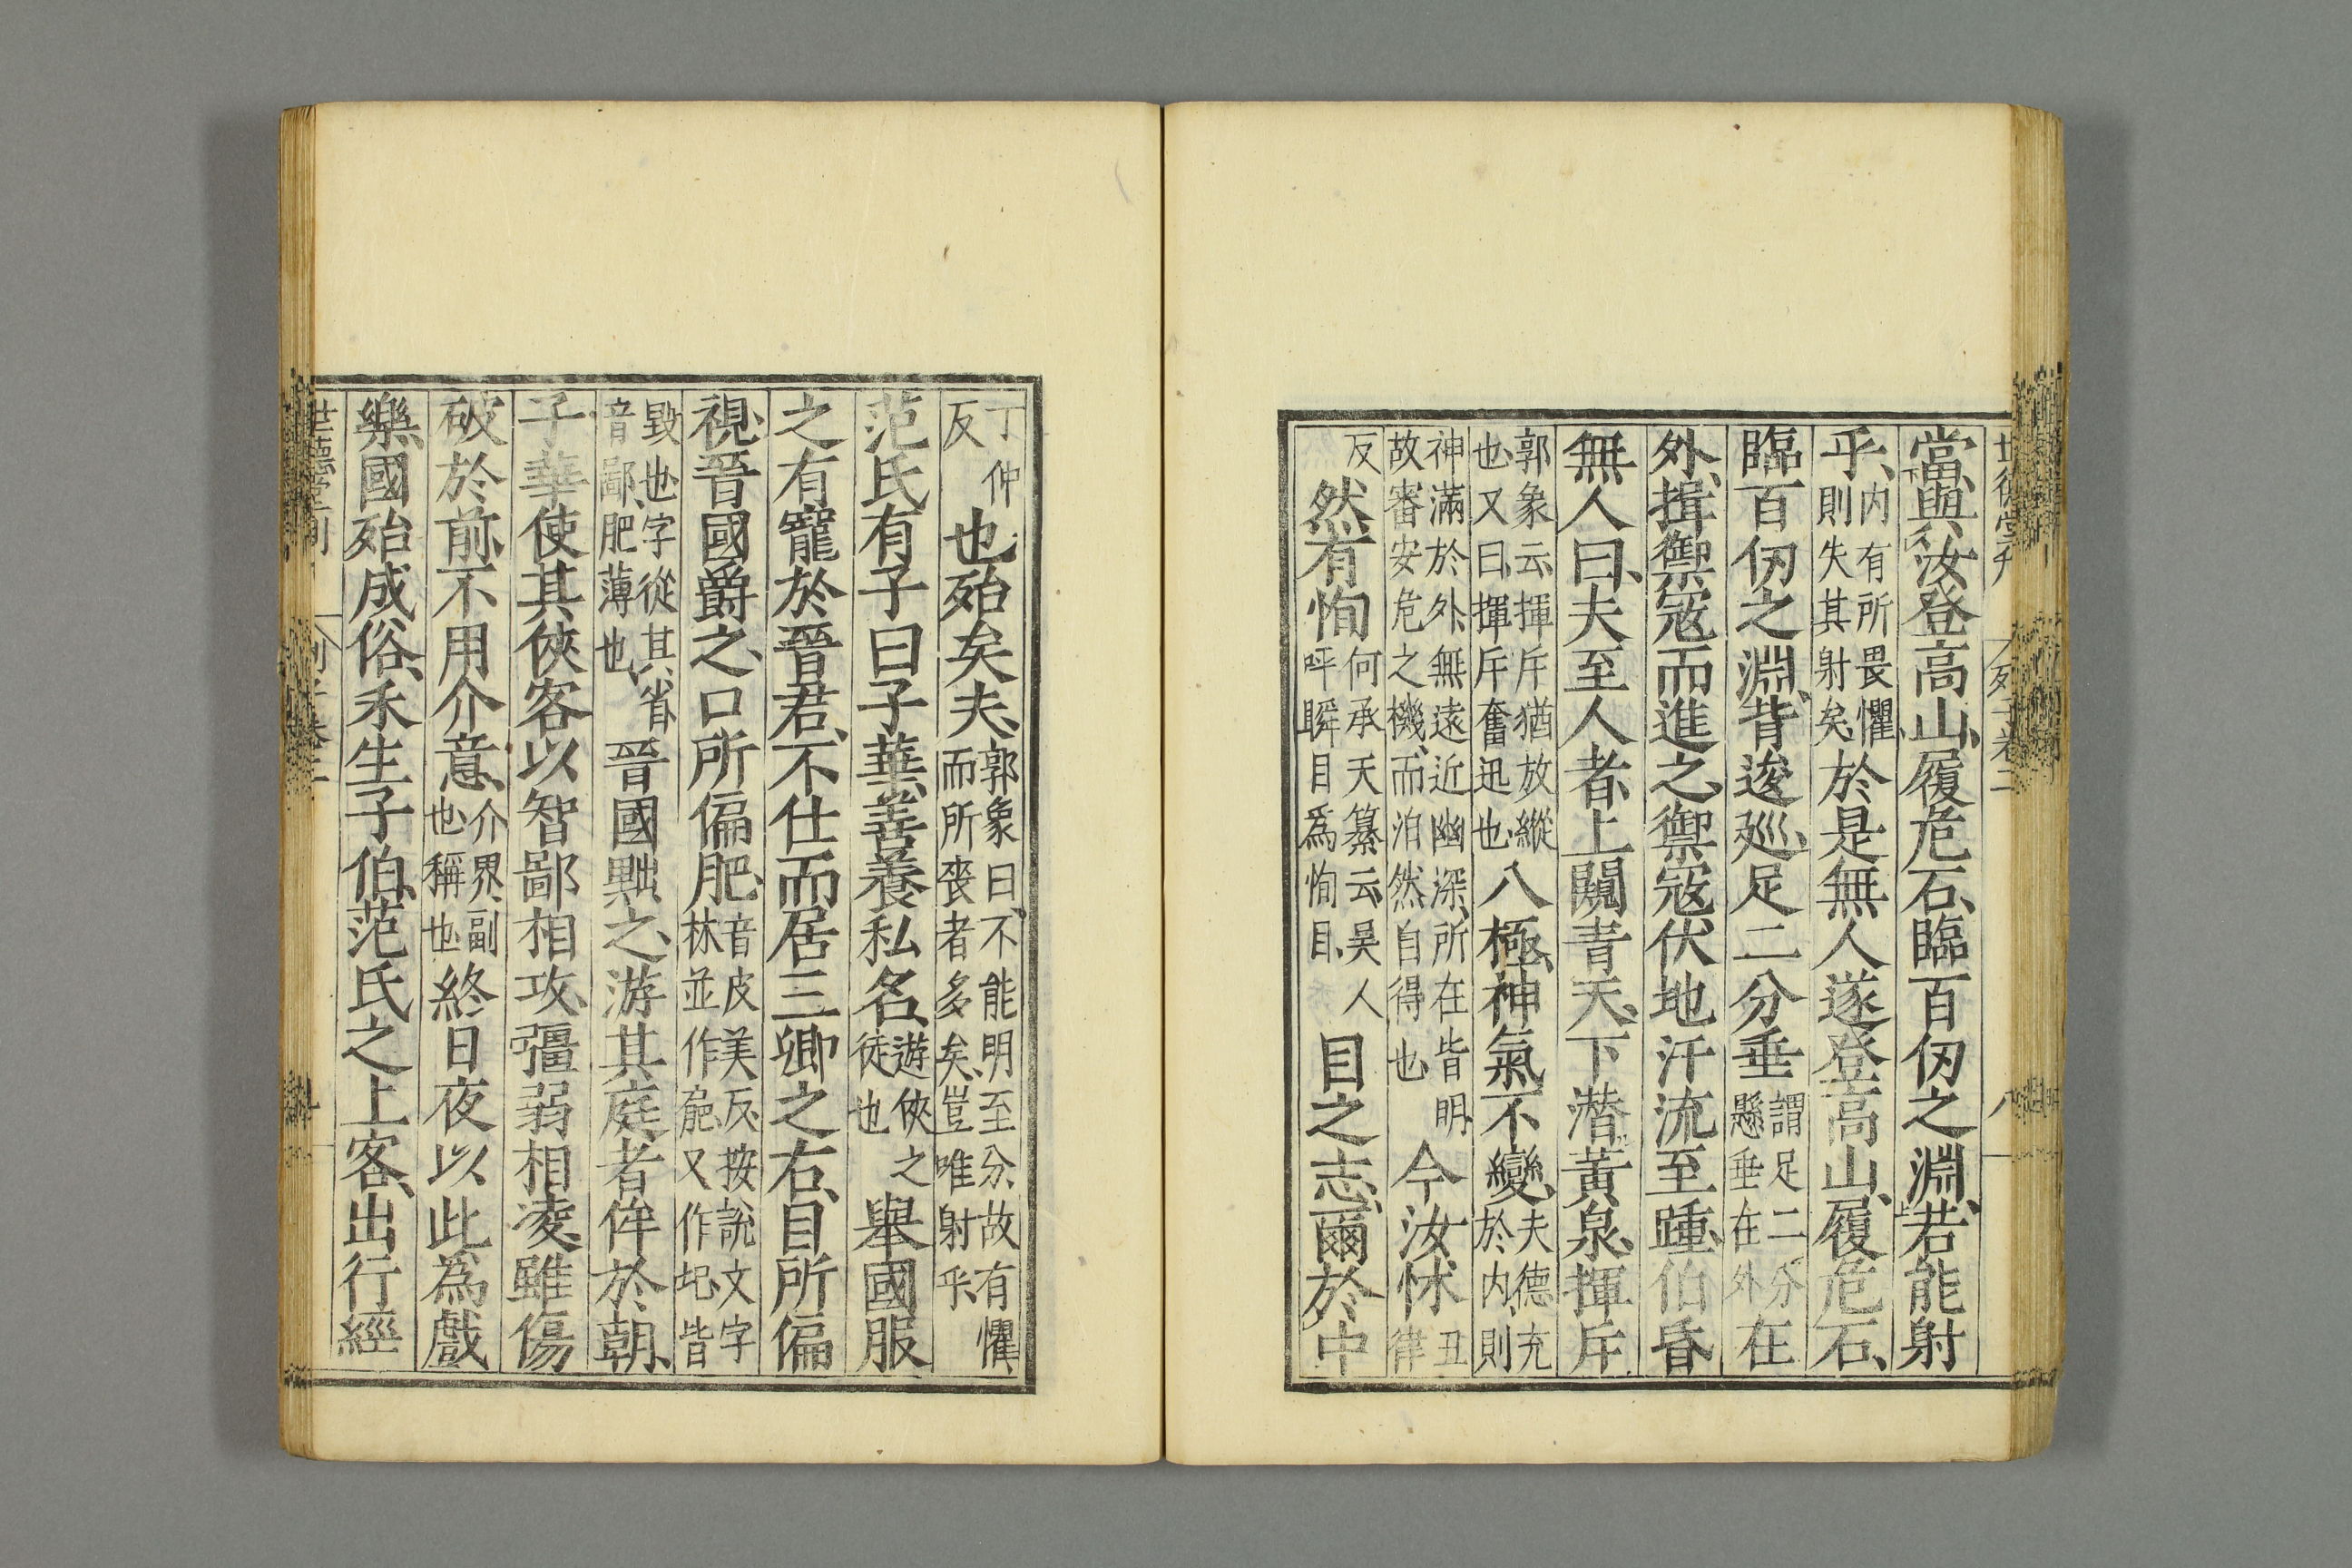 當與汝登高山、履危石、臨百仞之淵、若能射
乎、内有所畏懼、則失其射矣、於是無人遂登高山、履危石、
臨百仞之淵、背逡巡、足二分垂謂足二分懸垂在外在
外、揖禦寇而進之、禦寇伏地汗流至踵、伯昏
無人曰、夫至人者、上闚青天、下潜黃泉、揮斥
郭象云、揮斥猶放縱也、又曰、揮斥奮迅也、八極、神氣不變、夫德充於内、則
神滿於外、無遠近幽深、所在皆明、故審安危之機、而泊然自得也、今汝怵丑律
反然有恂何承天纂云、吴人呼瞬目爲恂目、目之志、爾於中
丁仲反也、殆矣夫、郭象曰、不能明至分、故有懼、而所喪者多矣、豈唯射乎、
范氏有子曰子華、善養私名、遊俠之徒也舉國服
之有寵於晉君、不仕而居三卿之右、目所偏
視、晉國爵之、口所偏肥、音皮美反、按說文字林並作𡚁又作圮、皆
毀也、字從其、省音鄙、肥薄也、晉國黜之、游其庭者侔於朝、
子華使其俠客以智鄙相攻、彊弱相凌、雖傷
破於前、不用介意、介界、副也、稱也、終日夜以此為戲
樂、國殆成俗、禾生子伯、范氏之上客、出行經
世德堂刊
列子卷二
八
九